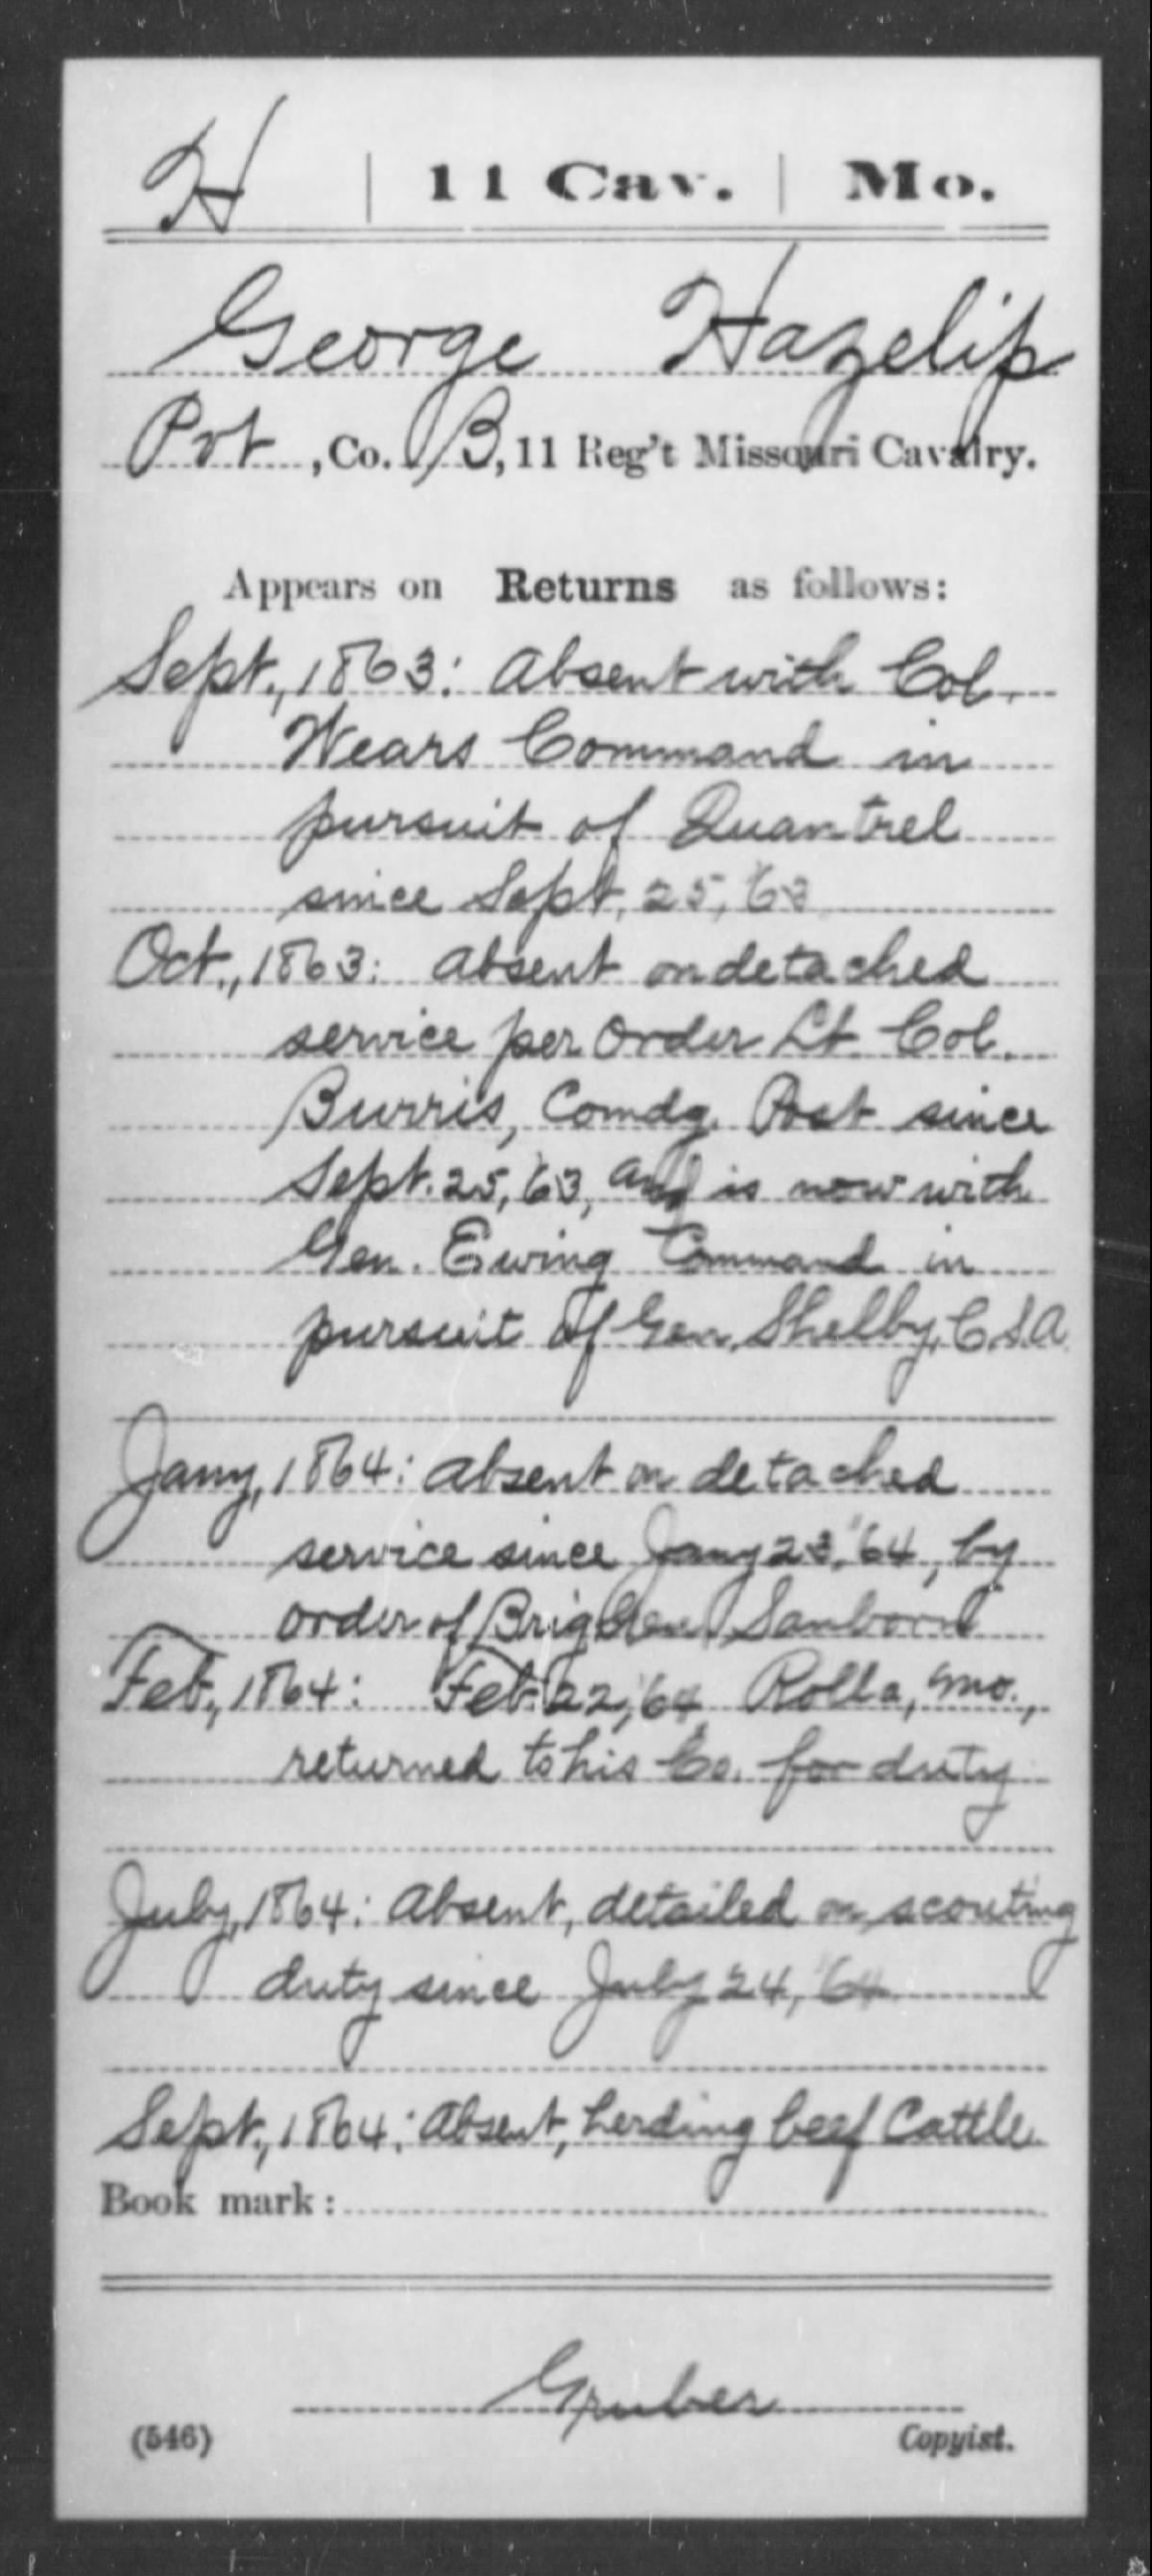 H | 11 Cav. | Mo.
George Hazelip
Pvt, Co. B, 11 Reg't Missouri Cavalry.
Appears on Returns as follows:
Sept., 1863: Absent with Col.
Wears Command in
pursuit of Quantrel
since Sept. 25, '63
Oct., 1863: Absent on detached
service per order Lt. Col.
Burris, Comdg. Post since
Sept. 25, '63, and is now with
Gen. Ewing Command in
pursuit of Gen. Shelby, C.S.A.
Jany, 1864: Absent on detached
service since Jany 23, '64, by
order of Brig Gen Sanborn
Feb., 1864: Feb. 22, '64 Rolla, Mo.,
returned to his Co. for duty
July, 1864: Absent, detailed on scouting
duty since July 24, '64
Sept., 1864: Absent, herding beef Cattle
Book mark:
Gruber
(546) Copyist.